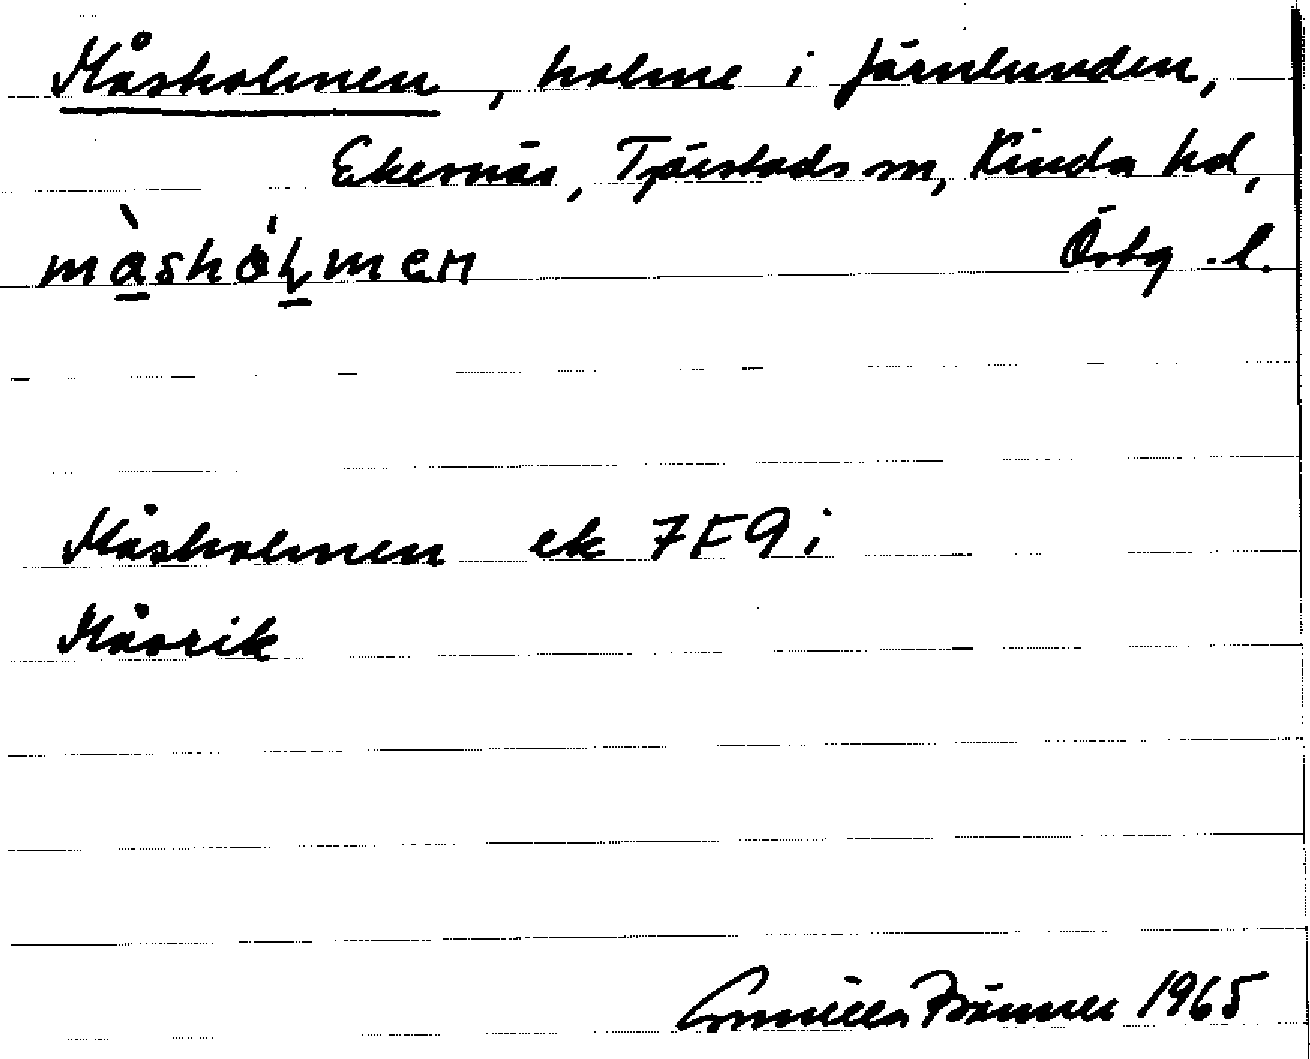 Måsholmen, holme i Järnlunden,
Ekernäs, Tjärstads sn, Kinda hd,
Östg. l.
Måsholmen ek 7F9i
Måsrik
Gunilla Bränner 1965